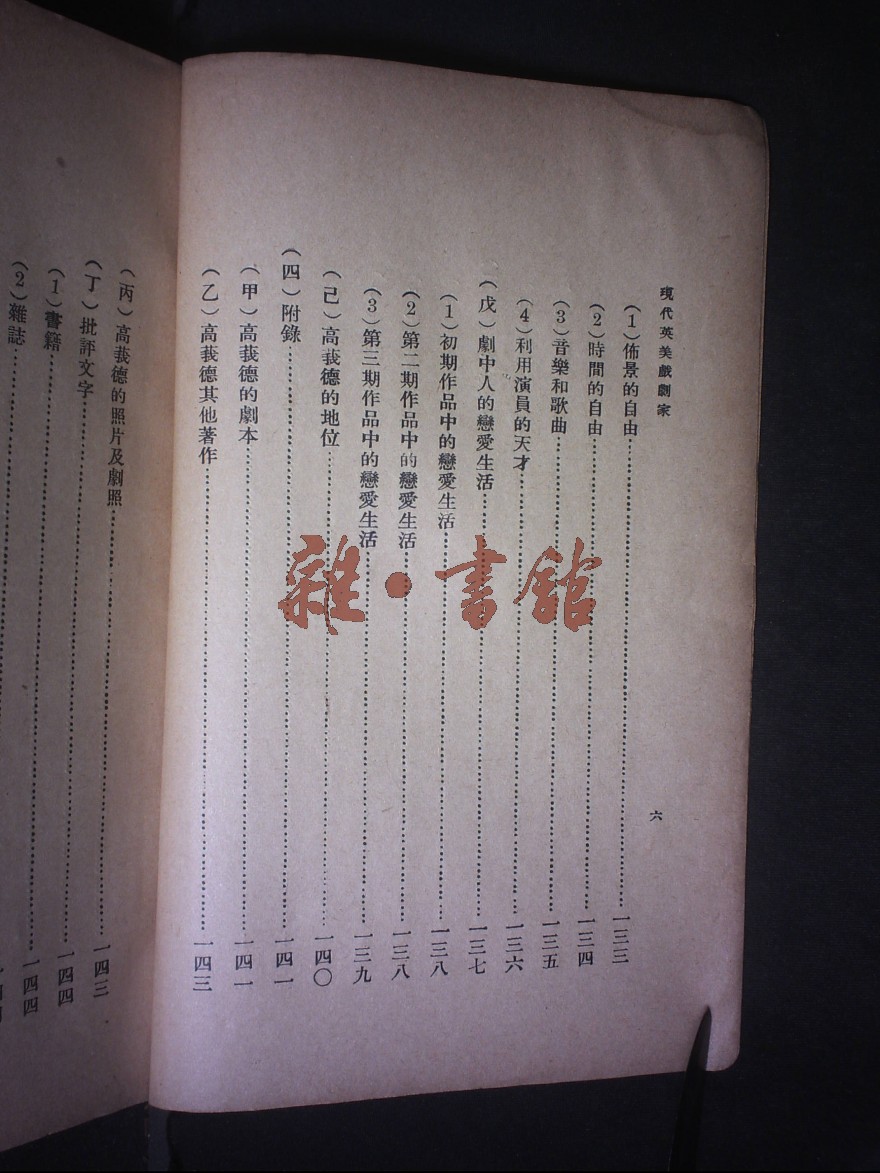 現代英美戲劇家
六
(1)佈景的自由……一三三
(2)時間的自由……一三四
(3)音樂和歌曲……一三五
(4)利用演員的天才……一三六
(戊)劇中人的戀愛生活……一三七
(1)初期作品中的戀愛生活……一三八
(2)第二期作品中的戀愛生活……一三八
(3)第三期作品中的戀愛生活……一三九
(己)高莪德的地位……一四〇
(四)附錄……一四一
(甲)高莪德的劇本……一四一
(乙)高莪德其他著作……一四三
(丙)高莪德的照片及劇照……一四三
(丁)批評文字……一四四
(1)書籍……一四四
(2)雜誌……
雜·書館